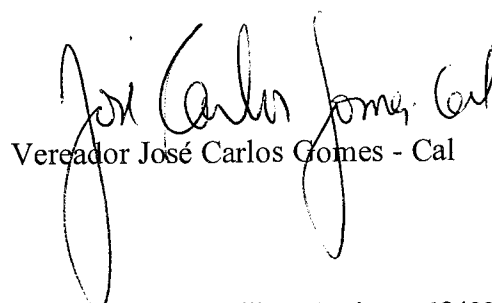 José Carlos Gomes. Cal
Vereador José Carlos Gomes - Cal